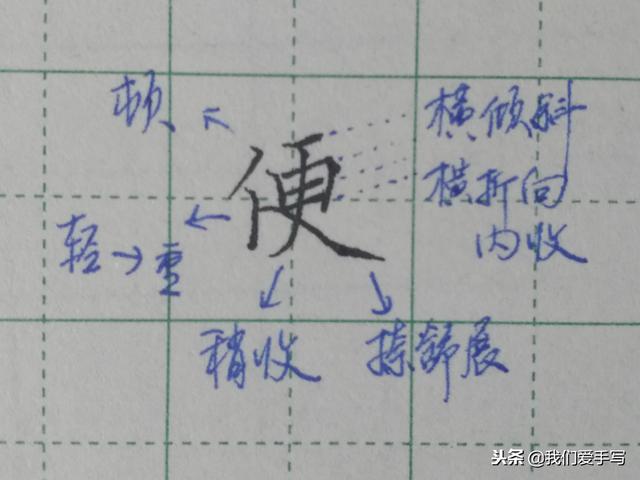 顿
横倾斜
便
横折向
内收
轻→重
稍收
捺舒展
头条@我们爱手写